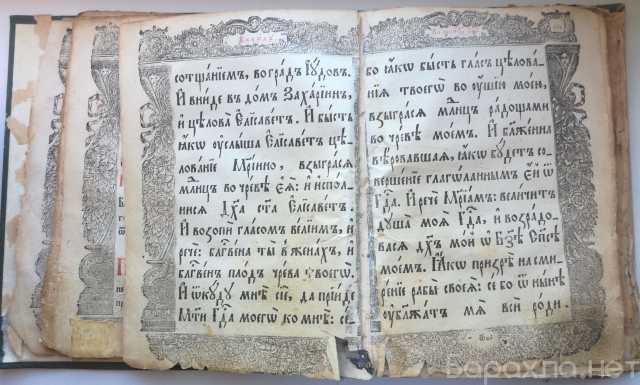 сотщанїемъ, воградъ Їꙋдовъ.
И вниде въ домъ Захарїинъ,
и҆ цѣлова Елїсаветъ. И бысть
ꙗкѡ оуслыша Елїсаветъ цѣ
лованїе Мр҃їино, взыграсѧ
млⷣнцъ во чревѣ еѧ: и҆ и҆сполни
сѧ Дх҃а ст҃а Елїсаветъ.
И возопи гласомъ велїимъ, и҆
рече: блгⷭвена ты̀ в женахъ, и҆
блгⷭвенъ плодъ чрева твоегѡ.
И ѿкꙋдꙋ мнѣ сїе, да прїиде
Мт҃и Гдⷭа моегѡ ко мнѣ: се
бо ꙗкѡ бысть гласъ цѣлова
нїѧ твоегѡ во оушїю моею,
взыграсѧ млⷣнцъ радощами
во чревѣ моемъ. И блаженна
вѣровавшаѧ, ꙗкѡ бꙋдетъ со
вершенїе глаголаннымъ ей ѿ
Гдⷭа. И рече Мр҃їамъ: величитъ
дꙋша моѧ Гдⷭа, и҆ возрадо
васѧ дх҃ъ мой ѡ Бз҃ѣ Сп҃сѣ
моемъ. Ꙗкѡ призрѣ на сми
ренїе рабы своеѧ: се бо ѿ нынѣ
оублажатъ мѧ вси роди.
барахла.нет